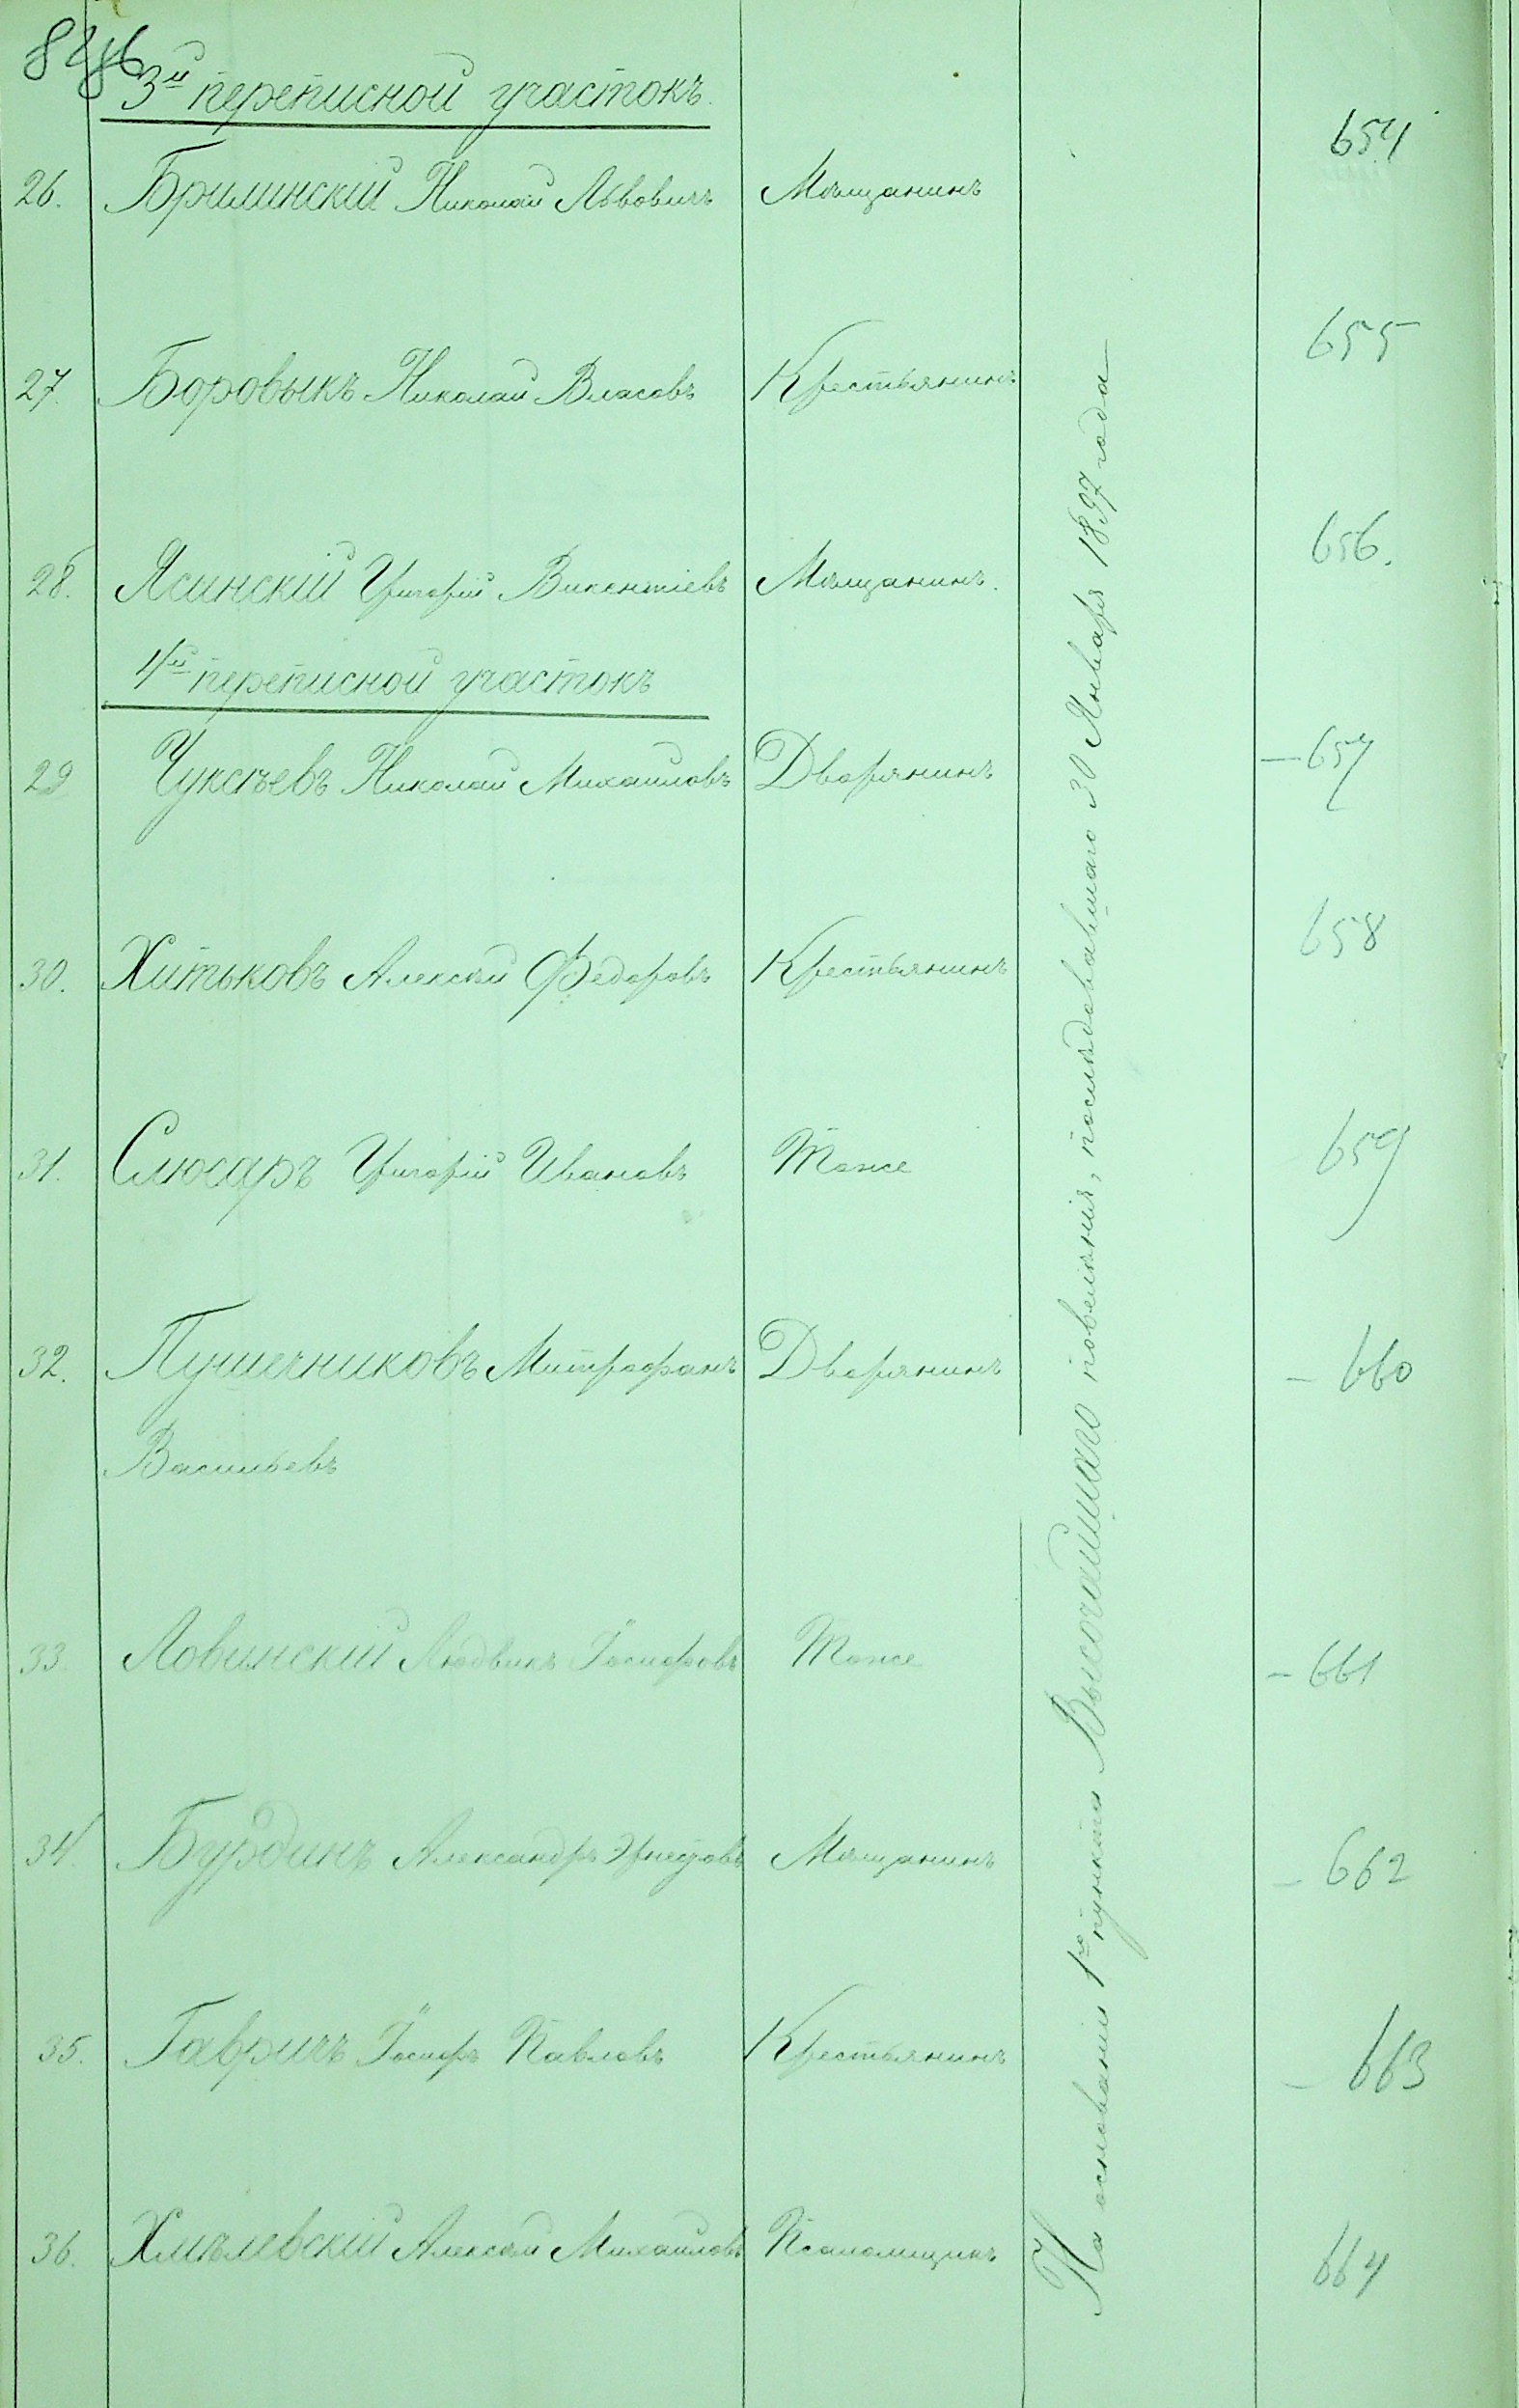 3й переписной участокъ.
654
26. Брилинскій Николай Львовичъ Мѣщанинъ
655
27. Боровыкъ Николай Власовъ Крестьянинъ
656.
28. Ясинскій Григорій Викентіевъ Мѣщанинъ.
4й переписной участокъ
29 Чуксѣевъ Николай Михайловъ Дворянинъ — 657
658
30. Хитьковъ Алексѣй Федоровъ Крестьянинъ
31. Слюсаръ Григорій Ивановъ Тоже 659
32. Пушечниковъ Митрофанъ Дворянинъ — 660
Васильевъ
33. Ловинскій Людвикъ Іосифовъ Тоже — 661
34. Бурдинъ Александръ Мѣщанинъ — 662
35. Гавричъ Іосифъ Павловъ Крестьянинъ — 663
36. Хмѣлевскій Алексѣй Михайловъ Псаломщикъ 664
На основаніи 1го пункта Высочайшаго повелѣнія, послѣдовавшаго 30 Января 1897 года